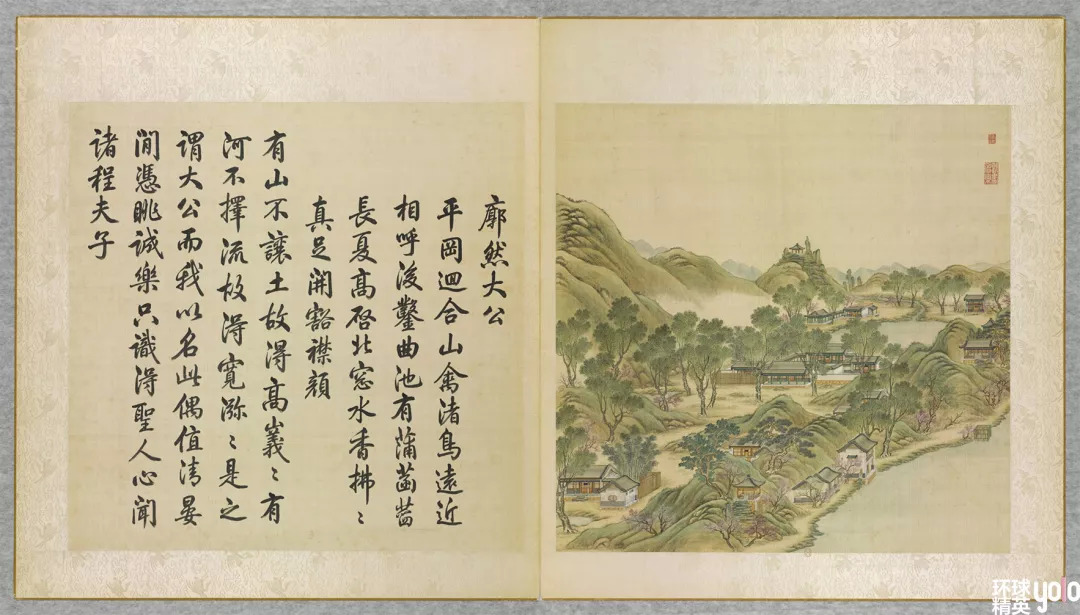 廓然大公
平岡迴合山禽渚鳥遠近
相呼後鑿曲池有蒲菡萏
長夏高啓北窓水香拂〻
真足開豁襟顏
有山不讓土故得高嶬〻有
河不擇流故得寬㳽〻是之
謂大公而我以名此偶值清晏
閒憑眺誠樂只識得聖人心聞
諸程夫子
环球
精英
yolo